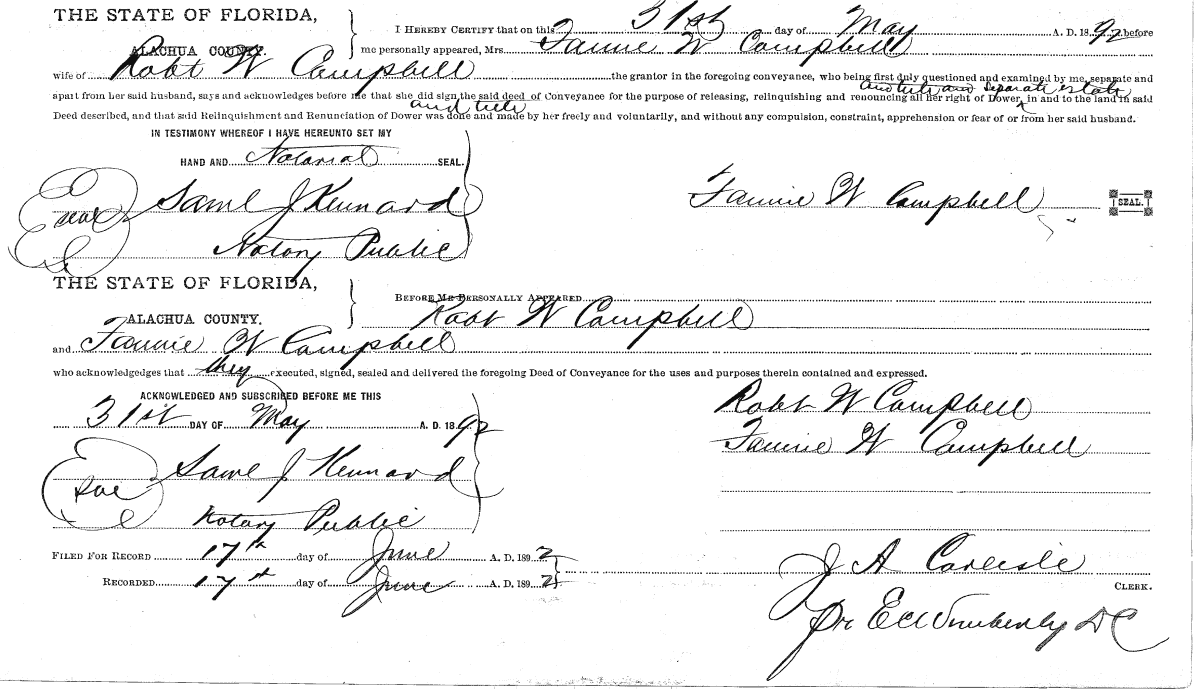 THE STATE OF FLORIDA,
ALACHUA COUNTY.
I HEREBY CERTIFY that on this 31st day of May A. D. 1892 before
me personally appeared, Mrs. Fannie W Campbell
wife of Robt W Campbell the grantor in the foregoing conveyance, who being first duly questioned and examined by me, separate and
and title and separate estate
apart from her said husband, says and acknowledges before me that she did sign the said deed of Conveyance for the purpose of releasing, relinquishing and renouncing all her right of Dower, in and to the land in said
and title
Deed described, and that said Relinquishment and Renunciation of Dower was done and made by her freely and voluntarily, and without any compulsion, constraint, apprehension or fear of or from her said husband.
IN TESTIMONY WHEREOF I HAVE HEREUNTO SET MY
HAND AND Notarial SEAL.
seal Saml J Kennard
Notary Public
Fannie W Campbell SEAL.
THE STATE OF FLORIDA,
ALACHUA COUNTY.
BEFORE ME PERSONALLY APPEARED
Robt W Campbell
and Fannie W Campbell
who acknowledgedges that they executed, signed, sealed and delivered the foregoing Deed of Conveyance for the uses and purposes therein contained and expressed.
ACKNOWLEDGED AND SUBSCRIBED BEFORE ME THIS
31st DAY OF May A. D. 1892
Saml J Kennard
Notary Public
Robt W Campbell
Fannie W Campbell
FILED FOR RECORD 17th day of June A. D. 1892
RECORDED 17th day of June A. D. 1892
J A Carlisle
CLERK.
Pr E C Wimberly DC